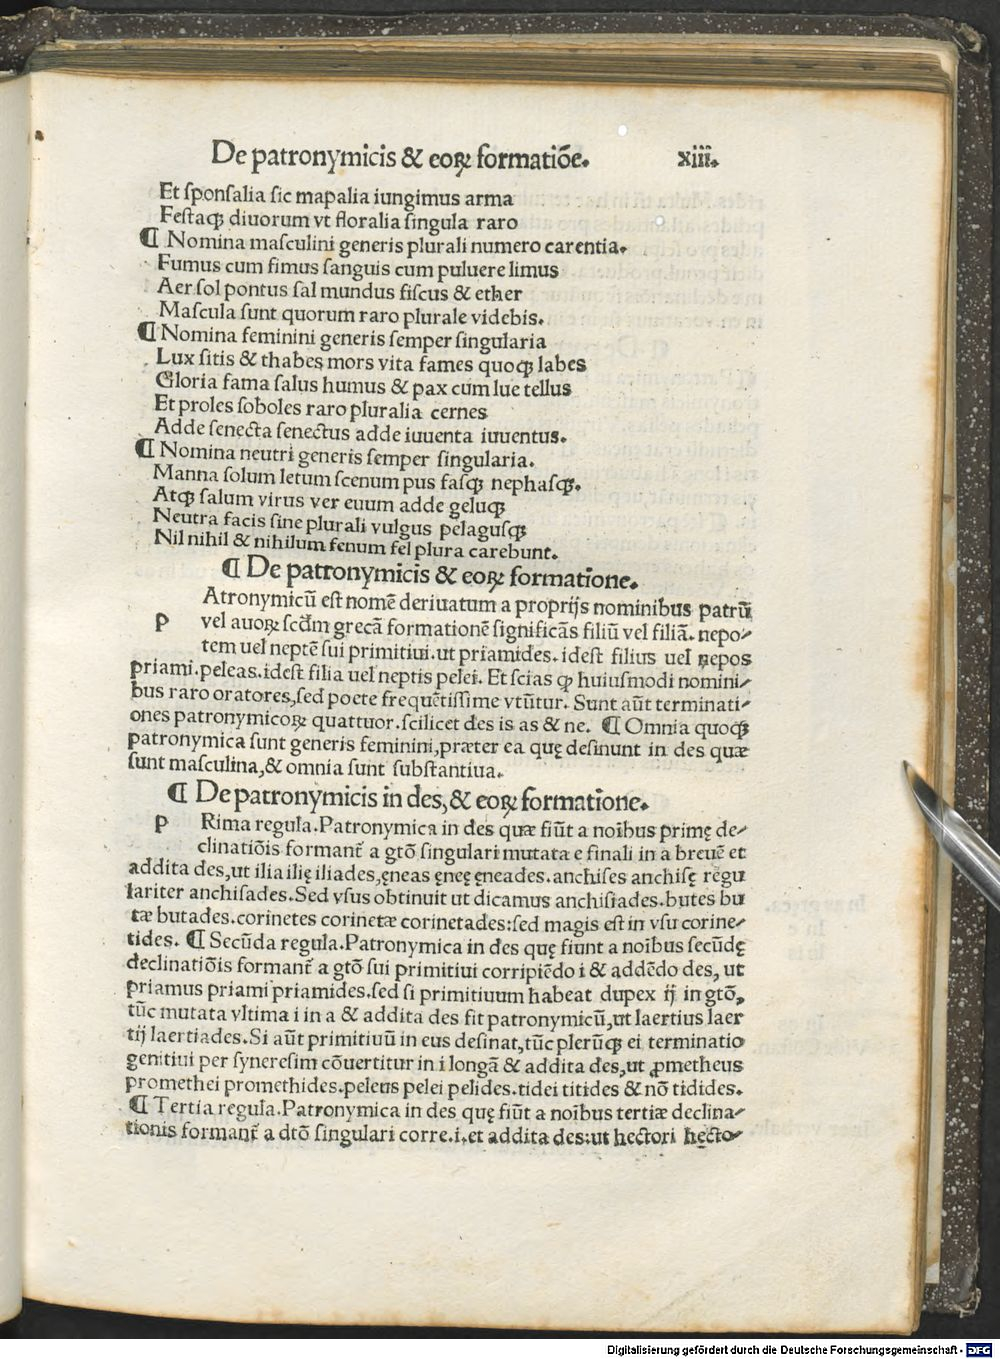 De patronymicis & eoꝝ formatiõe. xiii.
Et ſponſalia ſic mapalia iungimus arma
Feſtaqꝫ diuorum vt floralia ſingula raro
¶ Nomina maſculini generis plurali numero carentia.
Fumus cum fimus ſanguis cum puluere limus
Aer ſol pontus ſal mundus fiſcus & ether
Maſcula ſunt quorum raro plurale videbis.
¶ Nomina feminini generis ſemper ſingularia
Lux ſitis & thabes mors vita fames quoqꝫ labes
Gloria fama ſalus humus & pax cum lue tellus
Et proles ſoboles raro pluralia cernes
Adde ſenecta ſenectus adde iuuenta iuuentus.
¶ Nomina neutri generis ſemper ſingularia.
Manna ſolum letum ſcenum pus faſqꝫ nephaſqꝫ.
Atqꝫ ſalum virus ver euum adde geluqꝫ
Neutra facis ſine plurali vulgus pelaguſqꝫ
Nil nihil & nihilum fenum fel plura carebunt.
¶ De patronymicis & eoꝝ formatione.
p Atronymicũ eſt nomẽ deriuatum a proprijs nominibus patrũ
vel auoꝝ ſcđm grecã formationẽ ſignificãs filiũ vel filiã. nepo-
tem uel neptẽ ſui primitiui. ut priamides. ideſt filius uel nepos
priami. peleas. ideſt filia uel neptis pelei. Et ſcias ꝙ huiuſmodi nomini-
bus raro oratores, ſed poete frequẽtiſſime vtũtur. Sunt aũt terminati-
ones patronymicoꝝ quattuor. ſcilicet des is as & ne. ¶ Omnia quoqꝫ
patronymica ſunt generis feminini, præter ea quę deſinunt in des quæ
ſunt maſculina, & omnia ſunt ſubſtantiua.
¶ De patronymicis in des, & eoꝝ formatione.
p Rima regula. Patronymica in des quæ fiũt a noĩbus primę de-
clinatiõis formant᷑ a gtõ ſingulari mutata e finali in a breuẽ et
addita des, ut ilia ilię iliades, ęneas ęneę ęneades. anchiſes anchiſę regu
lariter anchiſades. Sed vſus obtinuit ut dicamus anchiſiades. butes bu
tæ butades. corinetes corinetæ corinetades: ſed magis eſt in vſu corine-
tides. ¶ Secũda regula. Patronymica in des quę fiunt a noĩbus ſecũdę
declinatiõis formant᷑ a gtõ ſui primitiui corripiẽdo i & addẽdo des, ut
priamus priami priamides. ſed ſi primitiuum habeat dupex ij in gtõ,
tũc mutata vltima i in a & addita des fit patronymicũ, ut laertius laer
tij laertiades. Si aũt primitiuũ in eus deſinat, tũc plerũqꝫ ei terminatio
genitiui per ſynereſim cõuertitur in i longã & addita des, ut ꝓmetheus
promethei promethides. peleus pelei pelides. tidei titides & nõ tidides.
¶ Tertia regula. Patronymica in des quę fiũt a noĩbus tertiæ declina-
tionis formant᷑ a dtõ ſingulari corre. i. et addita des: ut hectori hecto-
Digitalisierung gefördert durch die Deutsche Forschungsgemeinschaft - DFG